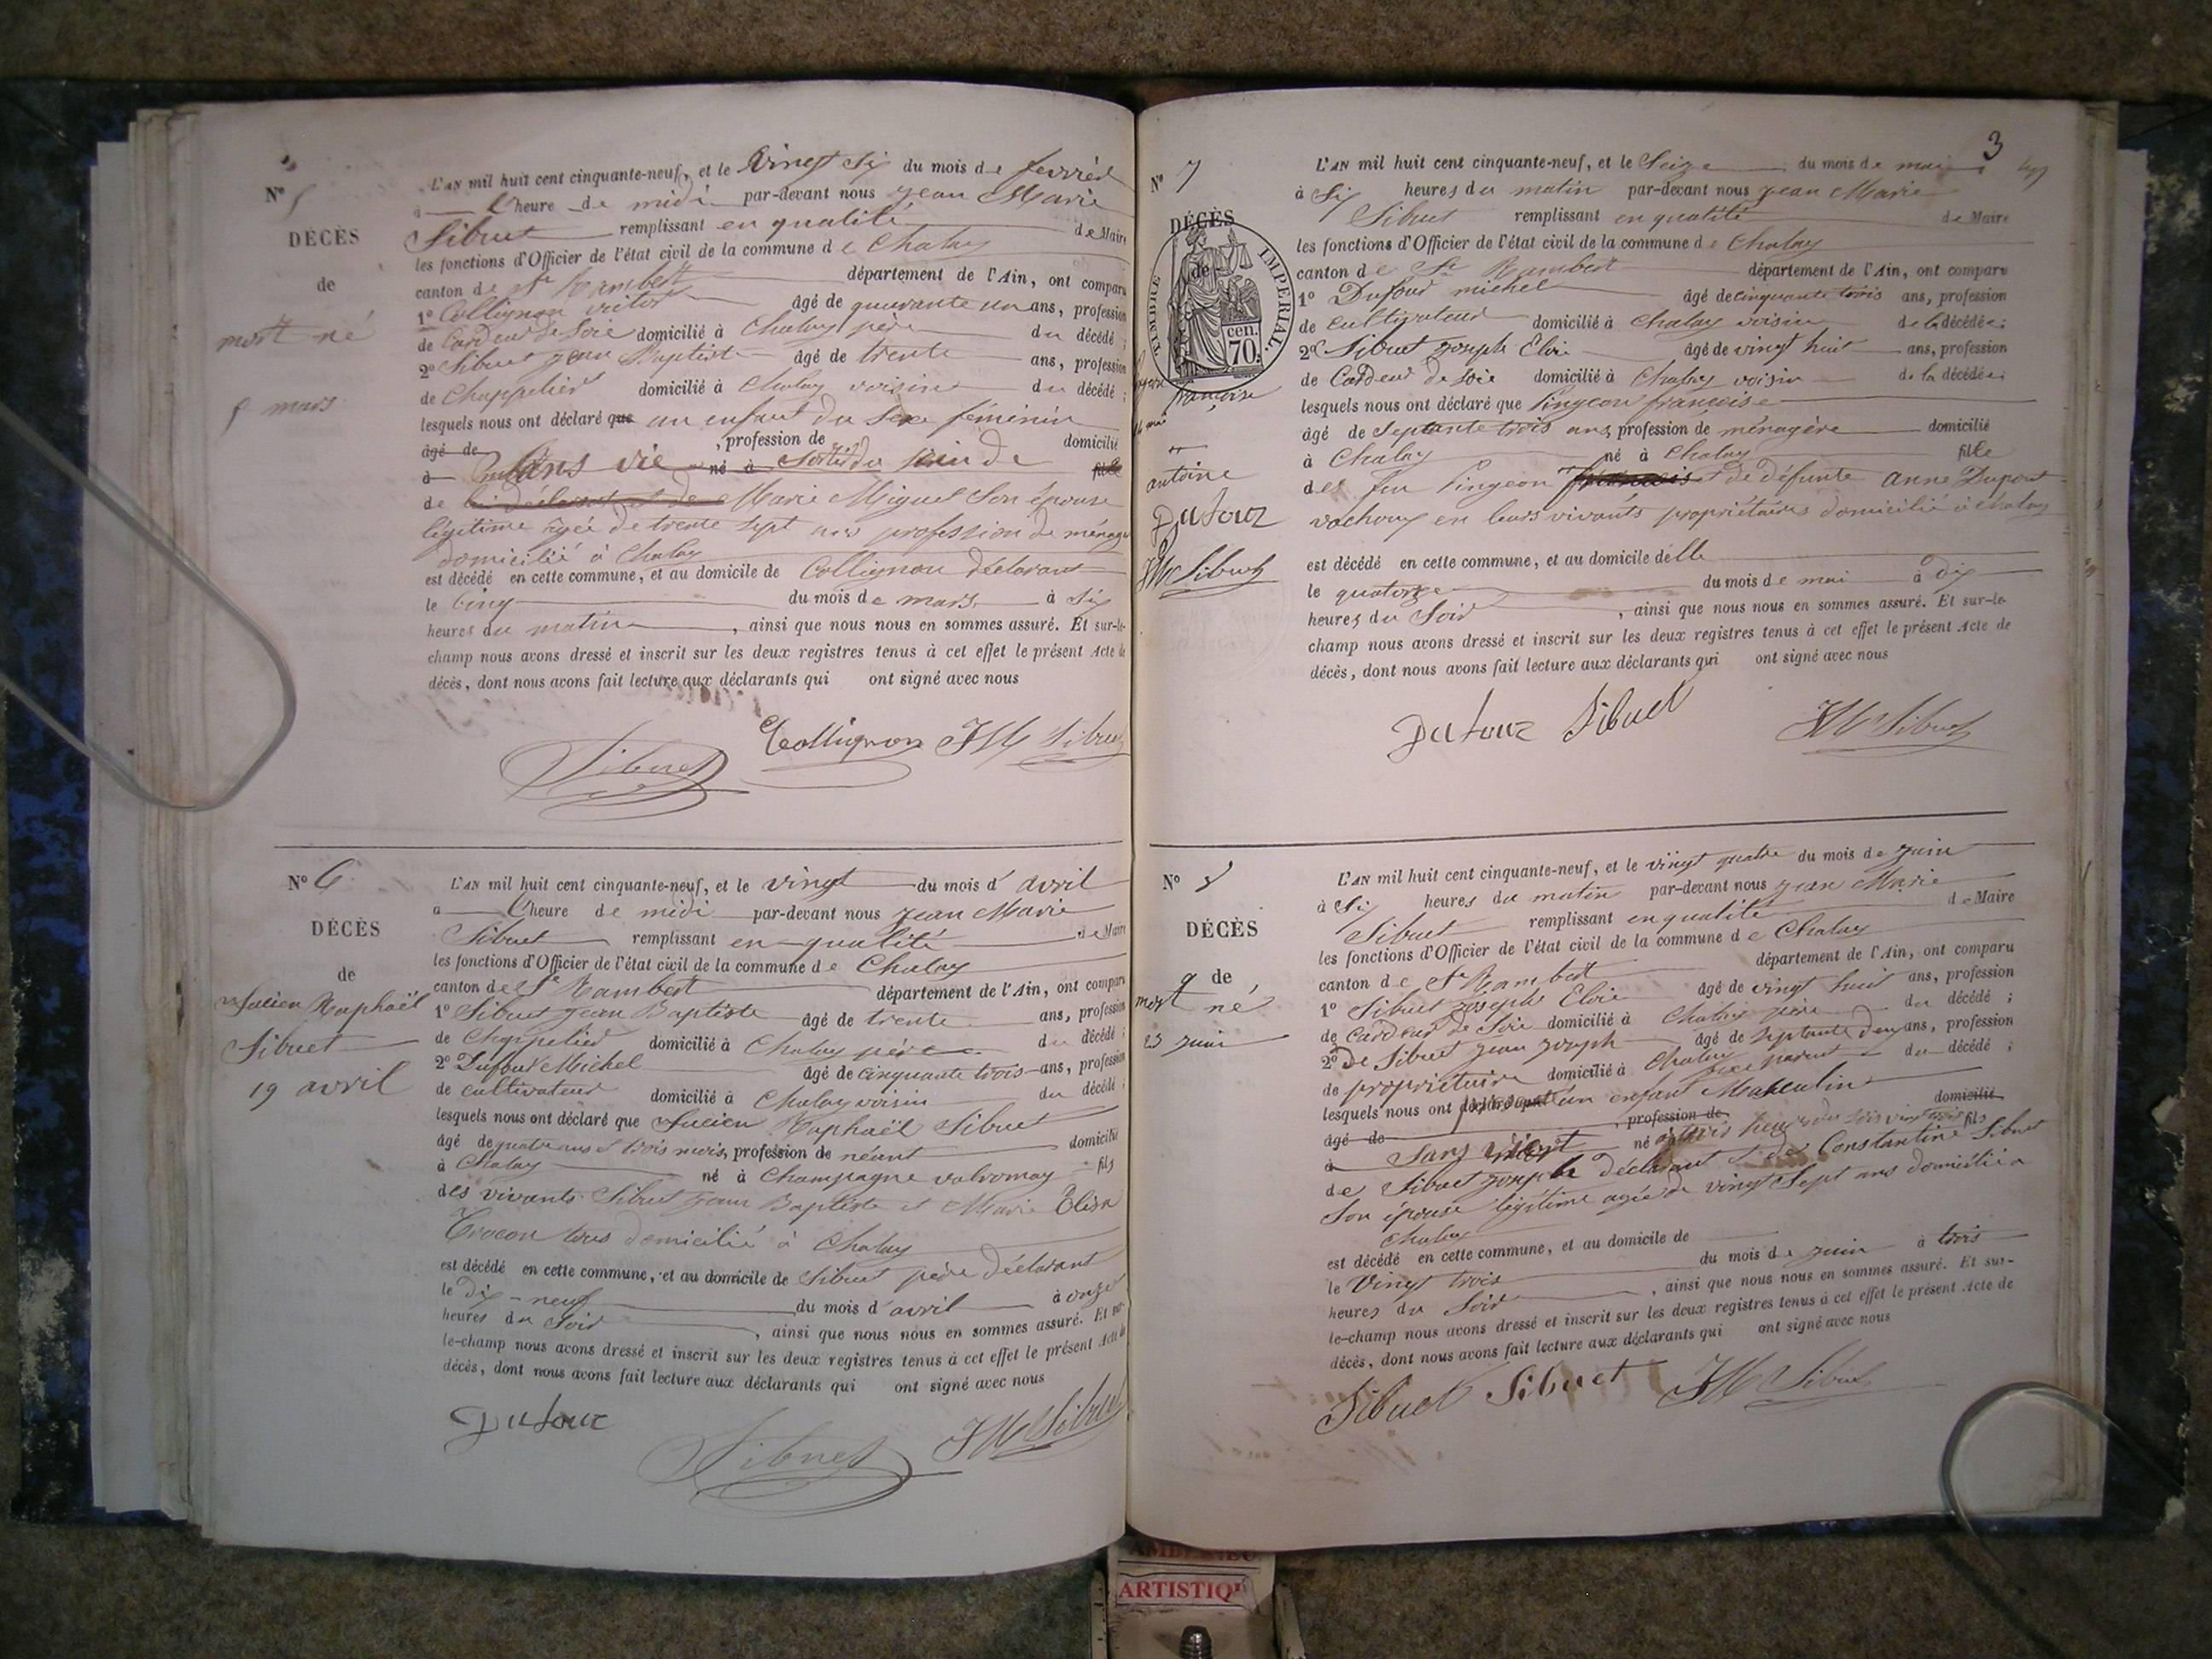 N° 5
DÉCÈS
de
mort né
5 mars
L'AN mil huit cent cinquante-neuf, et le vingt six du mois de fevrier
à l'heure de midi par-devant nous jean Marie
Sibuet remplissant en qualité de Maire
les fonctions d'Officier de l'état civil de la commune de Chaley
canton de St Rambert département de l'Ain, ont comparu
1° Collignon victor âgé de quarante un ans, profession
de Cardeur de Soie domicilié à Chaley père du décédé ;
2° Sibuet jean Baptiste âgé de trente ans, profession
de Chappelier domicilié à Chaley voisin du décédé ;
lesquels nous ont déclaré que un enfant du Sexe féminin
âgé de , profession de domicilié
à Sans vie né à Sortie du sein de fille
de Marie Miguet Son épouse
légitime agée de trente sept ans profession de ménag
domicilié à Chaley
est décédé en cette commune, et au domicile de Collignon déclarant
le Cinq du mois de mars à Six
heures du matin , ainsi que nous nous en sommes assuré. Et sur-le-
champ nous avons dressé et inscrit sur les deux registres tenus à cet effet le présent Acte de
décès, dont nous avons fait lecture aux déclarants qui ont signé avec nous
Collignon JM Sibuet
Sibuet
N° 6
DÉCÈS
de
Julien Raphaël
Sibuet
19 avril
L'AN mil huit cent cinquante-neuf, et le vingt du mois d' avril
à l'heure de midi par-devant nous jean Marie
Sibuet remplissant en qualité de Maire
les fonctions d'Officier de l'état civil de la commune de Chaley
canton de St Rambert département de l'Ain, ont comparu
1° Sibuet jean Baptiste âgé de trente ans, profession
de Chappelier domicilié à Chaley père du décédé ;
2° Dufour Michel âgé de cinquante trois ans, profession
de cultivateur domicilié à Chaley voisin du décédé ;
lesquels nous ont déclaré que Julien Raphaël Sibuet
âgé de quatre ans et trois mois, profession de néant domicilié
à Chaley né à Champagne valromay fils
des vivants Sibuet jean Baptiste et Marie Elisa
Crocon tous domicilié à Chaley
est décédé en cette commune, et au domicile de Sibuet père déclarant
le dix-neuf du mois d'avril à onze
heures du Soir , ainsi que nous nous en sommes assuré. Et sur-
le-champ nous avons dressé et inscrit sur les deux registres tenus à cet effet le présent Acte de
décès, dont nous avons fait lecture aux déclarants qui ont signé avec nous
Dufour
Sibuet JM Sibuet
3
N° 7
DÉCÈS
de
TIMBRE IMPERIAL
70 cen.
françoise
antoine
Dufour
JM Sibuet
L'AN mil huit cent cinquante-neuf, et le Seize du mois de mai
à Six heures du matin par-devant nous jean Marie
Sibuet remplissant en qualité de Maire
les fonctions d'Officier de l'état civil de la commune de Chaley
canton de St Rambert département de l'Ain, ont comparu
1° Dufour michel âgé de cinquante trois ans, profession
de cultivateur domicilié à Chaley voisin de la décédée ;
2° Sibuet joseph Eloie âgé de vingt huit ans, profession
de Cardeur de Soie domicilié à Chaley voisin de la décédée ;
lesquels nous ont déclaré que Pingeon françoise
âgé de Septante trois ans, profession de ménagère domicilié
à Chaley né à Chaley fille
des feu Pingeon françois et de défunte anne Dupont
vachoux en leurs vivants propriétaires domicilié à chaley
est décédé en cette commune, et au domicile d'elle
le quatorze du mois de mai à dix
heures du Soir , ainsi que nous nous en sommes assuré. Et sur-le-
champ nous avons dressé et inscrit sur les deux registres tenus à cet effet le présent Acte de
décès, dont nous avons fait lecture aux déclarants qui ont signé avec nous
Dufour Sibuet JM Sibuet
N° 8
DÉCÈS
de
mort né
23 juin
L'AN mil huit cent cinquante-neuf, et le vingt quatre du mois de juin
à Six heures du matin par-devant nous jean Marie
Sibuet remplissant en qualité de Maire
les fonctions d'Officier de l'état civil de la commune de Chaley
canton de St Rambert département de l'Ain, ont comparu
1° Sibuet joseph Eloie âgé de vingt huit ans, profession
de Cardeur de Soie domicilié à Chaley père du décédé ;
2° De Sibuet jean joseph âgé de Septante deux ans, profession
de propriétaire domicilié à Chaley parent du décédé ;
lesquels nous ont un enfant Sexe Masculin
âgé de , profession de domicilié
à Sans né à trois heures du Soir vingt trois fils
de Sibuet joseph déclarant et de Constantine Sibuet
Son épouse légitime agée de vingt Sept ans domicilié a
Chaley
est décédé en cette commune, et au domicile de
le Vingt trois du mois de juin à trois
heures du Soir , ainsi que nous nous en sommes assuré. Et sur-
le-champ nous avons dressé et inscrit sur les deux registres tenus à cet effet le présent Acte de
décès, dont nous avons fait lecture aux déclarants qui ont signé avec nous
Sibuet Sibuet JM Sibuet
ARTISTIQ